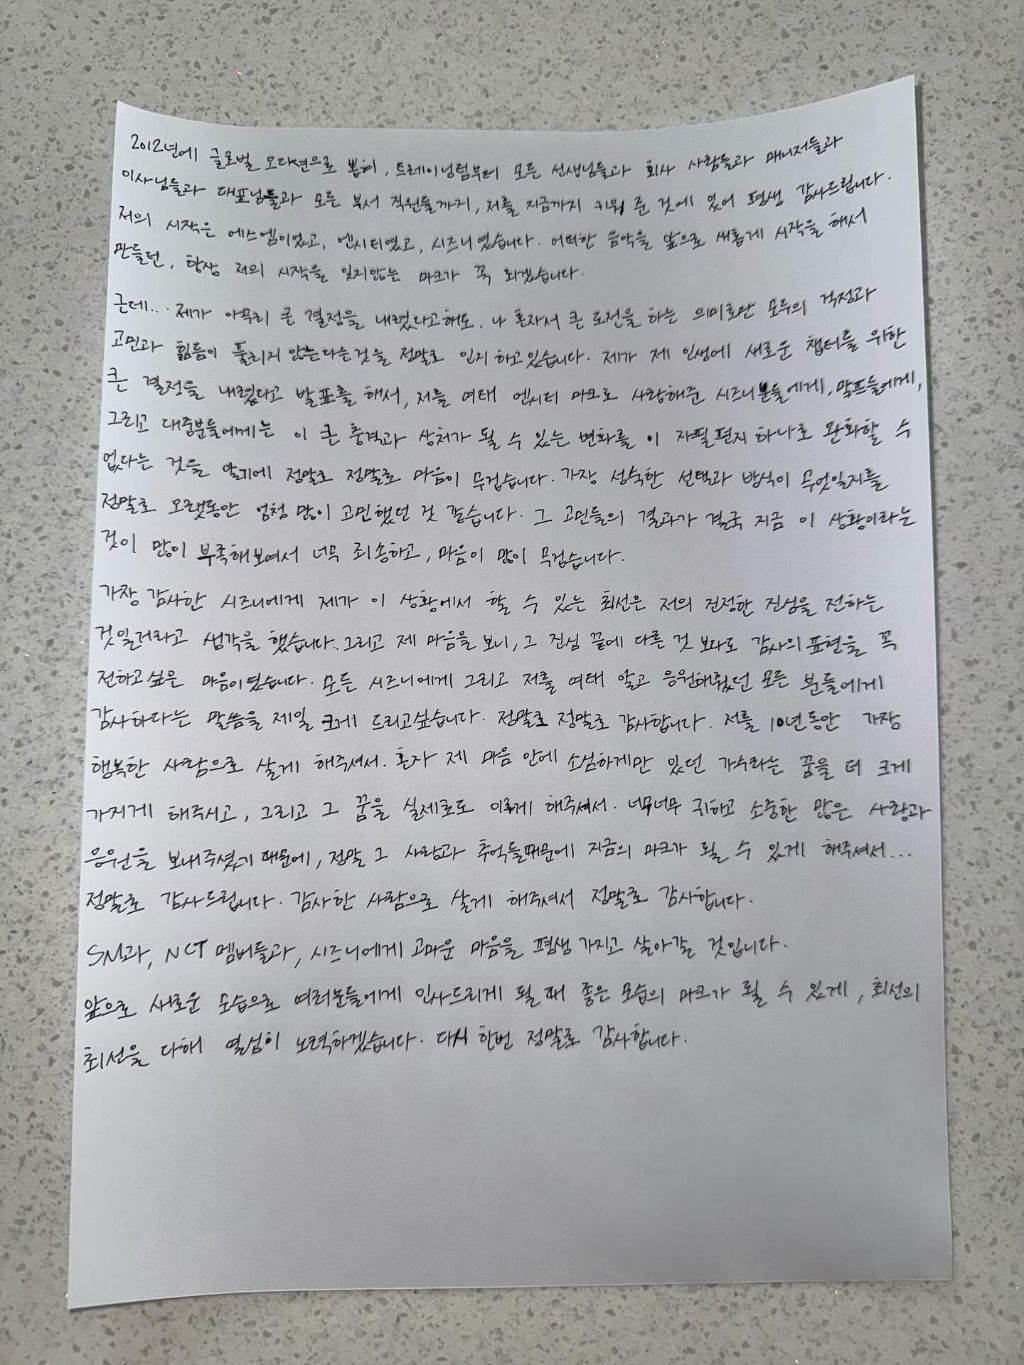 2012년에 글로벌 오디션으로 뽑혀, 트레이닝팀부터 모든 선생님들과 회사 사람들과 매니저들과
이사님들과 대표님들과 모든 부서 직원들까지, 저를 지금까지 키워 준 것에 있어 평생 감사드립니다.
저의 시작은 에스엠이었고, 엔시티였고, 시즈니였습니다. 어떠한 음악을 앞으로 새롭게 시작을 해서
만들던, 항상 저의 시작을 잊지않는 마크가 꼭 되겠습니다.
근데... 제가 아무리 큰 결정을 내렸다고해도, 나 혼자서 큰 도전을 하는 의미로만 모두의 걱정과
고민과 힘듦이 풀리지 않는다는것을 정말로 인지 하고있습니다. 제가 제 인생에 새로운 챕터를 위한
큰 결정을 내렸다고 발표를 해서, 저를 여태 엔시티 마크로 사랑해준 시즈니분들에게, 맠프들에게,
그리고 대중분들에게는 이 큰 충격과 상처가 될 수 있는 변화를 이 자필편지 하나로 완화할 수
없다는 것을 알기에 정말로 정말로 마음이 무겁습니다. 가장 성숙한 선택과 방식이 무엇일지를
정말로 오랫동안 엄청 많이 고민했던 것 같습니다. 그 고민들의 결과가 결국 지금 이 상황이라는
것이 많이 부족해보여서 너무 죄송하고, 마음이 많이 무겁습니다.
가장 감사한 시즈니에게 제가 이 상황에서 할 수 있는 최선은 저의 진정한 진심을 전하는
것일거라고 생각을 했습니다. 그리고 제 마음을 보니, 그 진심 끝에 다른 것 보다도 감사의 표현을 꼭
전하고 싶은 마음이였습니다. 모든 시즈니에게 그리고 저를 여태 알고 응원해줬던 모든 분들에게
감사하다는 말씀을 제일 크게 드리고싶습니다. 정말로 정말로 감사합니다. 저를 10년동안 가장
행복한 사람으로 살게 해주셔서. 혼자 제 마음 안에 소심하게만 있던 가수라는 꿈을 더 크게
가지게 해주시고, 그리고 그 꿈을 실제로도 이루게 해주셔서. 너무너무 귀하고 소중한 많은 사랑과
응원을 보내주셨기 때문에, 정말 그 사랑과 추억들때문에 지금의 마크가 될 수 있게 해주셔서...
정말로 감사드립니다. 감사한 사람으로 살게 해주셔서 정말로 감사합니다.
SM과, NCT 멤버들과, 시즈니에게 고마운 마음을 평생 가지고 살아갈 것입니다.
앞으로 새로운 모습으로 여러분들에게 인사드리게 될 때 좋은 모습의 마크가 될 수 있게, 최선의
최선을 다해 열심히 노력하겠습니다. 다시 한번 정말로 감사합니다.